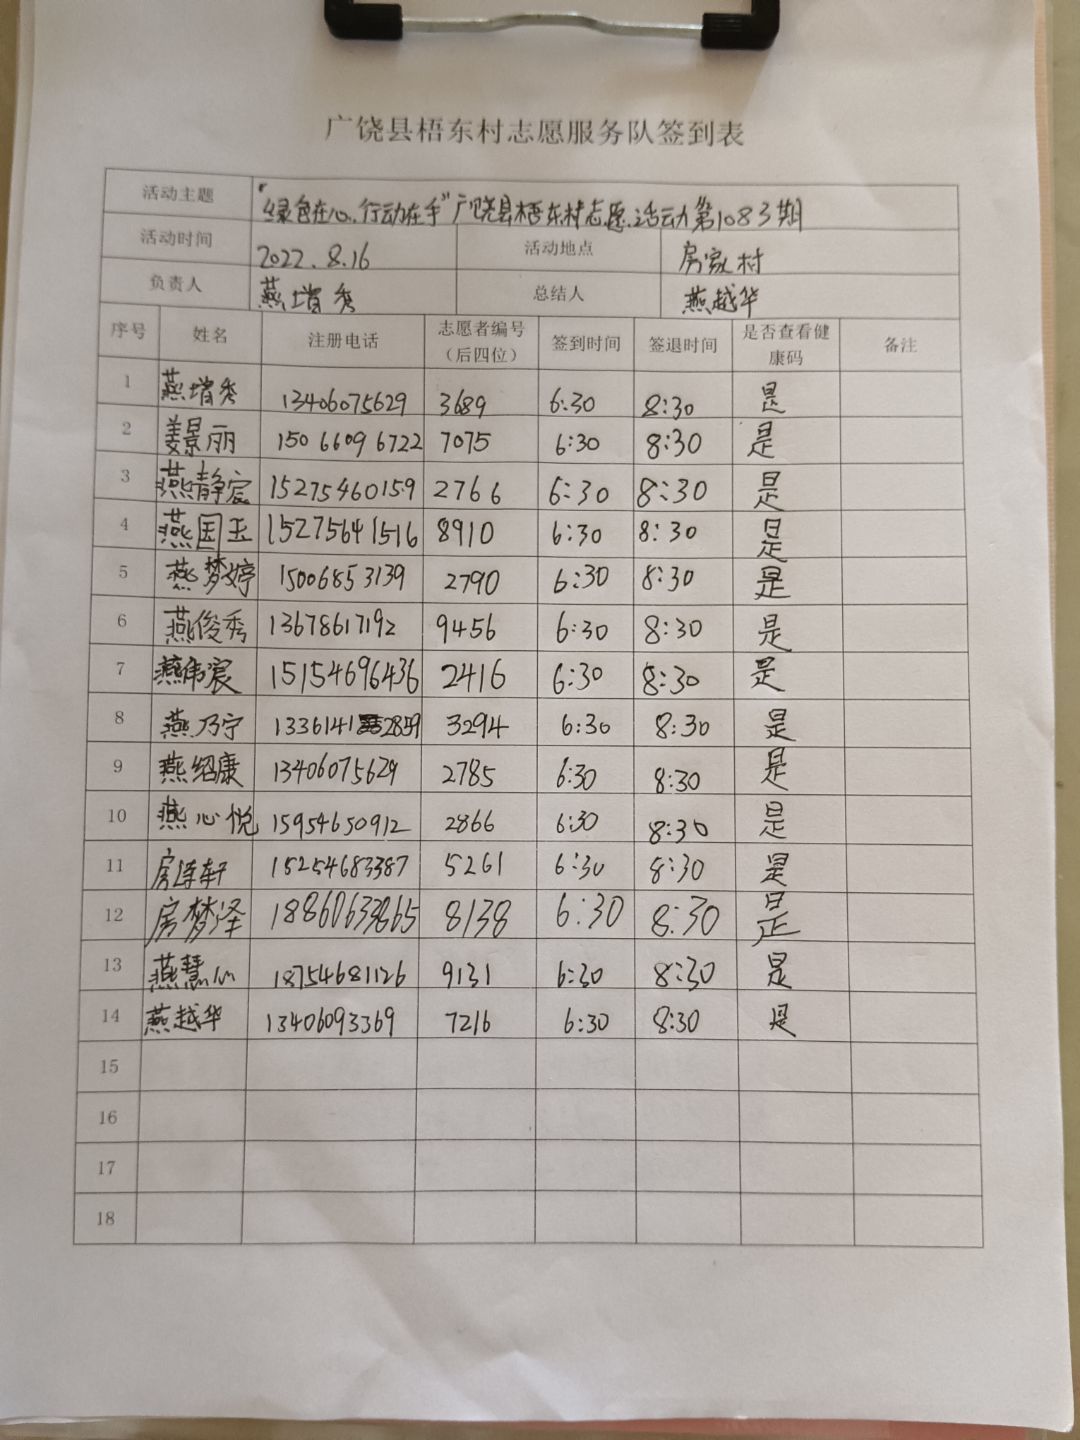 广饶县梧东村志愿服务队签到表
活动主题 “绿色在心、行动在手”广饶县梧东村志愿活动第1083期
活动时间 2022.8.16 活动地点 房家村
负责人 燕增秀 总结人 燕越华
序号 姓名 注册电话 志愿者编号（后四位） 签到时间 签退时间 是否查看健康码 备注
1 燕增秀 13406075629 3689 6:30 8:30 是
2 姜景丽 15066096722 7075 6:30 8:30 是
3 燕静宸 15275460159 2766 6:30 8:30 是
4 燕国玉 15275641516 8910 6:30 8:30 是
5 燕梦婷 15006853139 2790 6:30 8:30 是
6 燕俊秀 13678617192 9456 6:30 8:30 是
7 燕伟宸 15154696436 2416 6:30 8:30 是
8 燕乃宁 13361412859 3294 6:30 8:30 是
9 燕绍康 13406075629 2785 6:30 8:30 是
10 燕心悦 15954650912 2866 6:30 8:30 是
11 房轩 15254683387 5261 6:30 8:30 是
12 房梦泽 18860633865 8138 6:30 8:30 是
13 燕慧心 18754681126 9131 6:30 8:30 是
14 燕越华 13406093369 7216 6:30 8:30 是
15
16
17
18